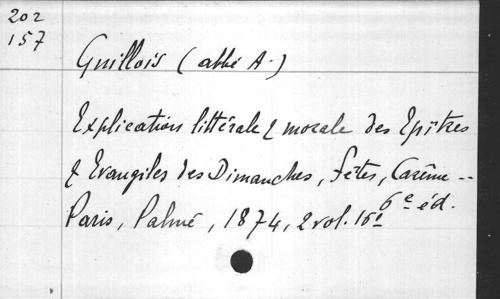 202
157
Guillois (abbé A.)
Explication littérale & morale des Epîtres
& Evangiles des Dimanches, fêtes, Carême --
Paris, Palmé, 1874, 2 vol. 16º 6e éd.